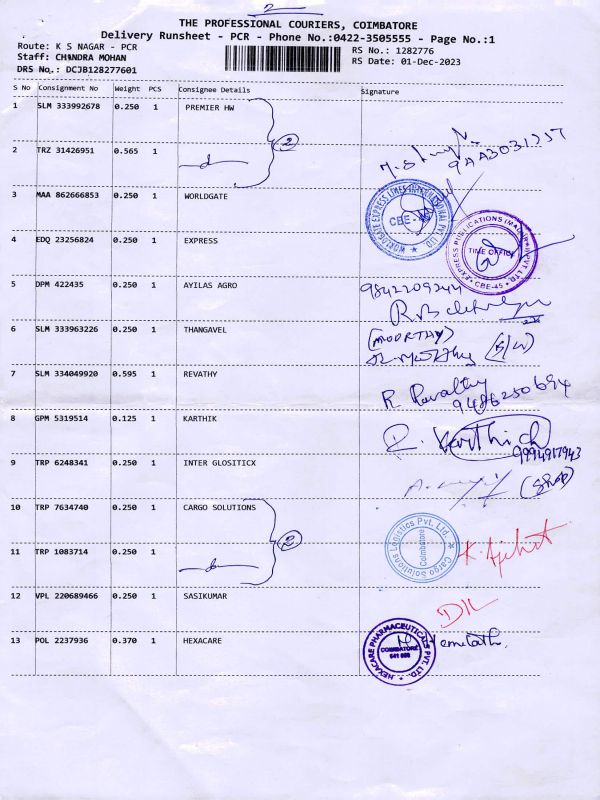 2
THE PROFESSIONAL COURIERS, COIMBATORE
Delivery Runsheet - PCR - Phone No.:0422-3505555 - Page No.:1
Route: K S NAGAR - PCR
RS No.: 1282776
Staff: CHANDRA MOHAN
RS Date: 01-Dec-2023
DRS No.: DCJB128277601
S No Consignment No Weight PCS Consignee Details Signature
1 SLM 333992678 0.250 1 PREMIER HW
2
2 TRZ 31426951 0.565 1
3 MAA 862666853 0.250 1 WORLDGATE
WORLDGATE EXPRESS LINES INTERNATIONAL PVT. LTD.
CBE
4 EDQ 23256824 0.250 1 EXPRESS
EXPRESS PUBLICATIONS (MADURAI) PVT LTD.
TIME OFFICE
CBE-45
5 DPM 422435 0.250 1 AYILAS AGRO
9842209244
6 SLM 333963226 0.250 1 THANGAVEL
(MOORTHY)
(B/W)
7 SLM 334049920 0.595 1 REVATHY
R Revathy
9486250694
8 GPM 5319514 0.125 1 KARTHIK
R. Karthick
9994917943
9 TRP 6248341 0.250 1 INTER GLOSITICX
(Shop)
10 TRP 7634740 0.250 1 CARGO SOLUTIONS
2
Cargo Solutions Logistics Pvt. Ltd.
Coimbatore
11 TRP 1083714 0.250 1
12 VPL 220689466 0.250 1 SASIKUMAR
13 POL 2237936 0.370 1 HEXACARE
HEXACARE PHARMACEUTICALS PVT. LTD.
COIMBATORE